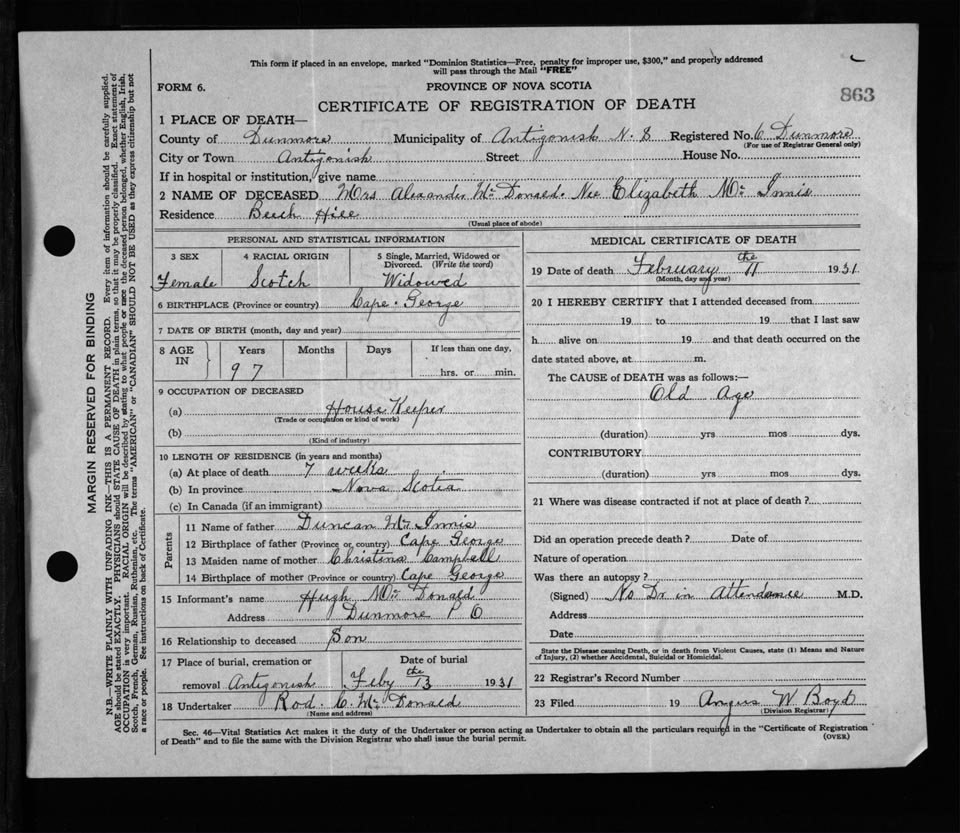 This form if placed in an envelope, marked "Dominion Statistics—Free, penalty for improper use, $300," and properly addressed
will pass through the Mail "FREE"
FORM 6.
PROVINCE OF NOVA SCOTIA
863
CERTIFICATE OF REGISTRATION OF DEATH
1 PLACE OF DEATH—
County of Dunmore Municipality of Antigonish N. S Registered No. 6 Dunmore
(For use of Registrar General only)
City or Town Antigonish Street House No.
If in hospital or institution, give name
2 NAME OF DECEASED Mrs Alexander Mc Donald. Nee Elizabeth Mc Innis
Residence Beech Hill
(Usual place of abode)
PERSONAL AND STATISTICAL INFORMATION
3 SEX 4 RACIAL ORIGIN 5 Single, Married, Widowed or
Divorced. (Write the word)
Female Scotch Widowed
6 BIRTHPLACE (Province or country) Cape George
7 DATE OF BIRTH (month, day and year)
8 AGE IN Years Months Days If less than one day,
97 hrs. or min.
9 OCCUPATION OF DECEASED
(a) House Keeper
(Trade or occupation or kind of work)
(b)
(Kind of industry)
10 LENGTH OF RESIDENCE (in years and months)
(a) At place of death 7 weeks
(b) In province Nova Scotia
(c) In Canada (if an immigrant)
Parents
11 Name of father Duncan Mc Innis
12 Birthplace of father (Province or country) Cape George
13 Maiden name of mother Christina Campbell
14 Birthplace of mother (Province or country) Cape George
15 Informant's name Hugh Mc Donald
Address Dunmore P O
16 Relationship to deceased Son
17 Place of burial, cremation or Date of burial
removal Antigonish Feby the 13 1931
18 Undertaker Rod. C. Mc Donald
(Name and address)
MEDICAL CERTIFICATE OF DEATH
19 Date of death February the 11 1931
(Month, day and year)
20 I HEREBY CERTIFY that I attended deceased from
19 to 19 that I last saw
h alive on 19 and that death occurred on the
date stated above, at m.
The CAUSE of DEATH was as follows:—
Old Age
(duration) yrs mos dys.
CONTRIBUTORY
(duration) yrs mos dys.
21 Where was disease contracted if not at place of death?
Did an operation precede death? Date of
Nature of operation
Was there an autopsy?
(Signed) No Dr in Attendance M.D.
Address
Date
State the Disease causing Death, or in death from Violent Causes, state (1) Means and Nature
of Injury, (2) whether Accidental, Suicidal or Homicidal.
22 Registrar's Record Number
23 Filed 19 Angus W Boyd
(Division Registrar)
Sec. 46—Vital Statistics Act makes it the duty of the Undertaker or person acting as Undertaker to obtain all the particulars required in the "Certificate of Registration
of Death" and to file the same with the Division Registrar who shall issue the burial permit.
(OVER)
MARGIN RESERVED FOR BINDING
N.B.—WRITE PLAINLY WITH UNFADING INK—THIS IS A PERMANENT RECORD. Every item of information should be carefully supplied.
AGE should be stated EXACTLY. PHYSICIANS should STATE CAUSE OF DEATH in plain terms, so that it may be properly classified. Exact statement of
OCCUPATION is very important. RACIAL ORIGIN will be described by stating to what people or race the deceased person belonged, whether English, Irish,
Scotch, French, German, Russian, Ruthenian, etc. The terms "AMERICAN" or "CANADIAN" SHOULD NOT BE USED as they express citizenship but not
a race or people. See instructions on back of Certificate.